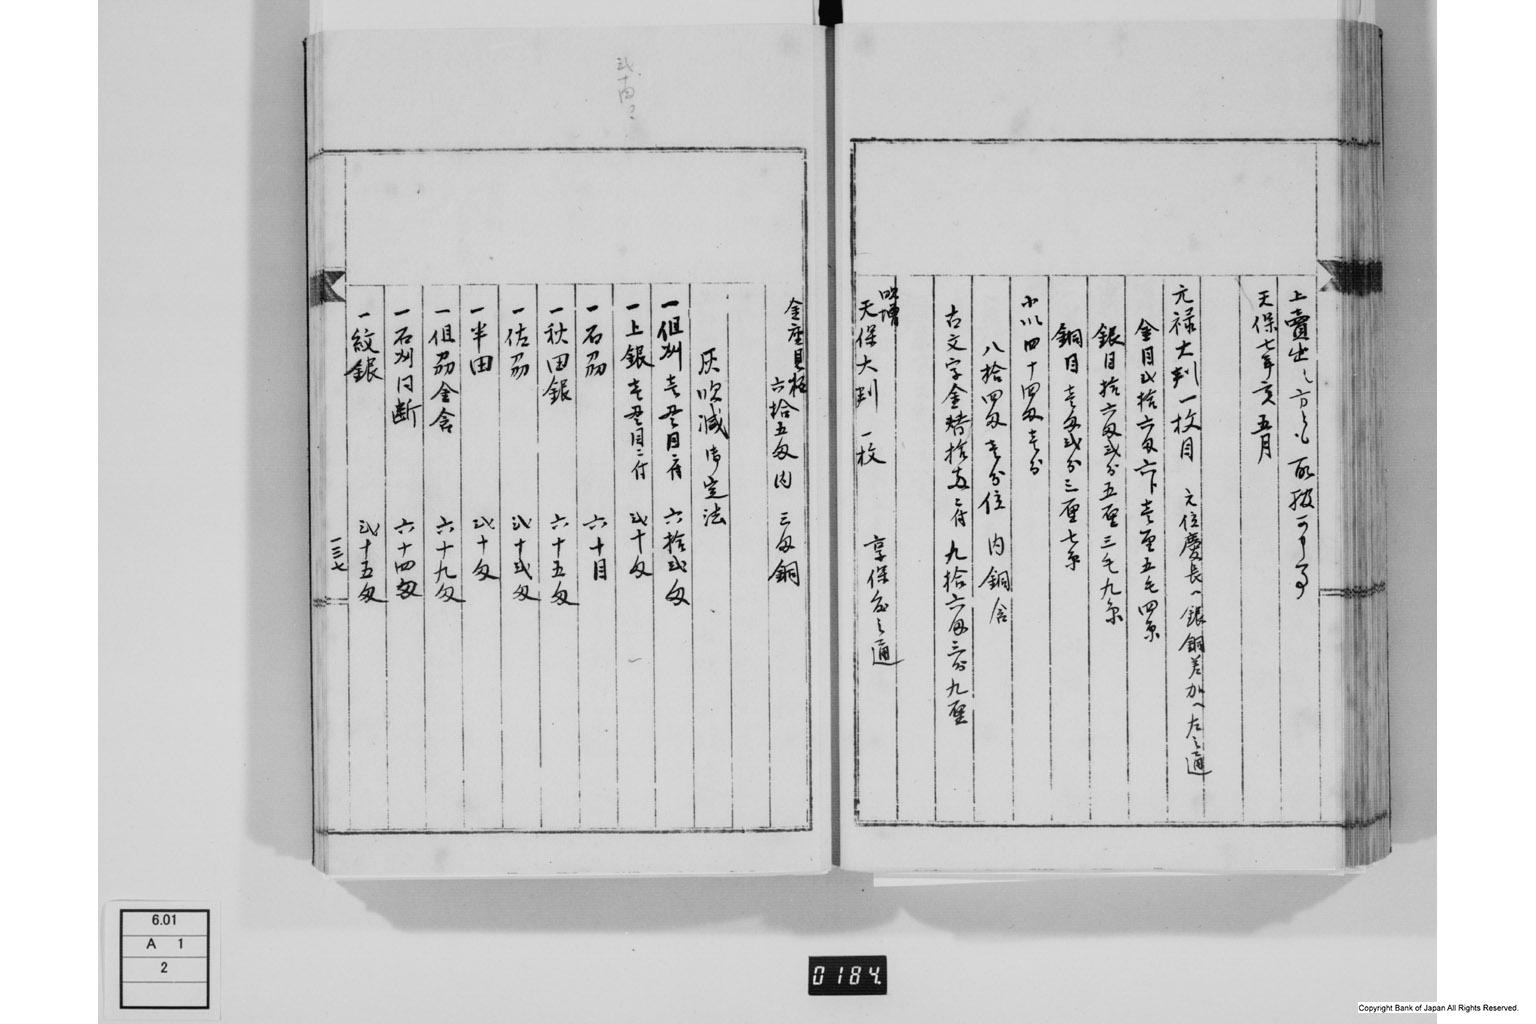 上賣出之方ゟも取扱可申事
天保七年亥五月
元禄大判一枚目 元位慶長へ銀銅差加へ左之通
金目弐拾六匁六分壱厘五毛四糸
銀目拾六匁弐分五厘三毛九糸
銅目壱匁弐分三厘七糸
〆四十四匁壱分
八拾四匁壱分位 内銅含
古文字金替拾両ニ付 九拾六匁三分九厘
吹増
天保大判 一枚 享保金之通
金座見極
六拾五匁内 三匁銅
灰吹減御定法
一但州壱貫目ニ付 六拾弐匁
一上銀壱貫目ニ付 弐十匁
一石州 六十目
一秋田銀 六十五匁
一佐州 弐十弐匁
一半田 弐十匁
一但州金含 六十九匁
一石州同断 六十四匁
一紋銀 弐十五匁
一三七
6.01
A 1
2
0184.
Copyright Bank of Japan All Rights Reserved.